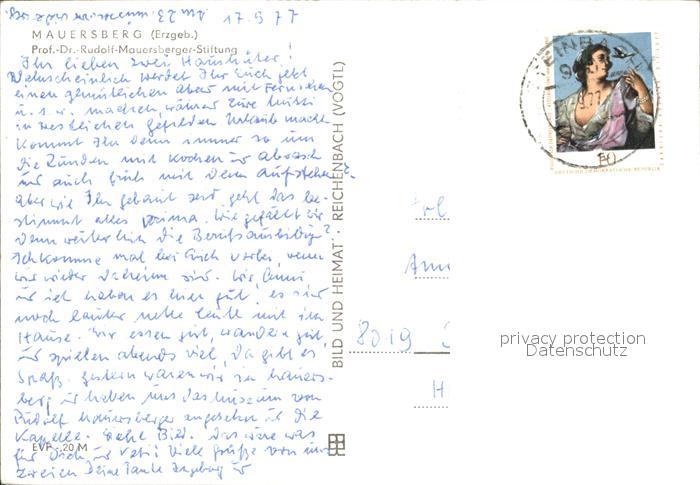 17.9.77
MAUERSBERG (Erzgeb.)
Prof.-Dr.-Rudolf-Mauersberger-Stiftung
Ihr lieben zwei Haushüter!
Wahrscheinlich werdet Ihr Euch jetzt
einen gemütlichen Abend mit Fernsehen
u.s.w. machen, während Eure Mutti
in westlichen Gefilden Urlaub macht.
Kommt Ihr denn immer so um
die Runden mit Kochen u. Abwasch
und auch früh mit dem Aufstehen?
aber wie Ihr gebaut seid, geht das be-
stimmt alles prima. Wie gefällt Dir
denn weiterhin die Berufsausbildung?
Ich komme mal bei Euch vorbei, wenn
wir wieder daheim sind. Wir,
u. ich haben es hier gut, es sind
noch lauter nette Leute mit im
Hause. Wir essen gut, wandern gut,
und spielen abends viel, da gibt es
Spaß. Gestern waren wir in Mauers-
berg u. haben uns das Museum von
Rudolf Mauersberger angesehen u. die
Kapelle. Siehe Bild. Das wäre was
für Dich u. Vati! Viele Grüße von uns
zweien Deine Tante Ingeborg u.
EVP -,20 M
BILD UND HEIMAT · REICHENBACH (VOGTL)
10
DEUTSCHE DEMOKRATISCHE REPUBLIK
8019
privacy protection
Datenschutz